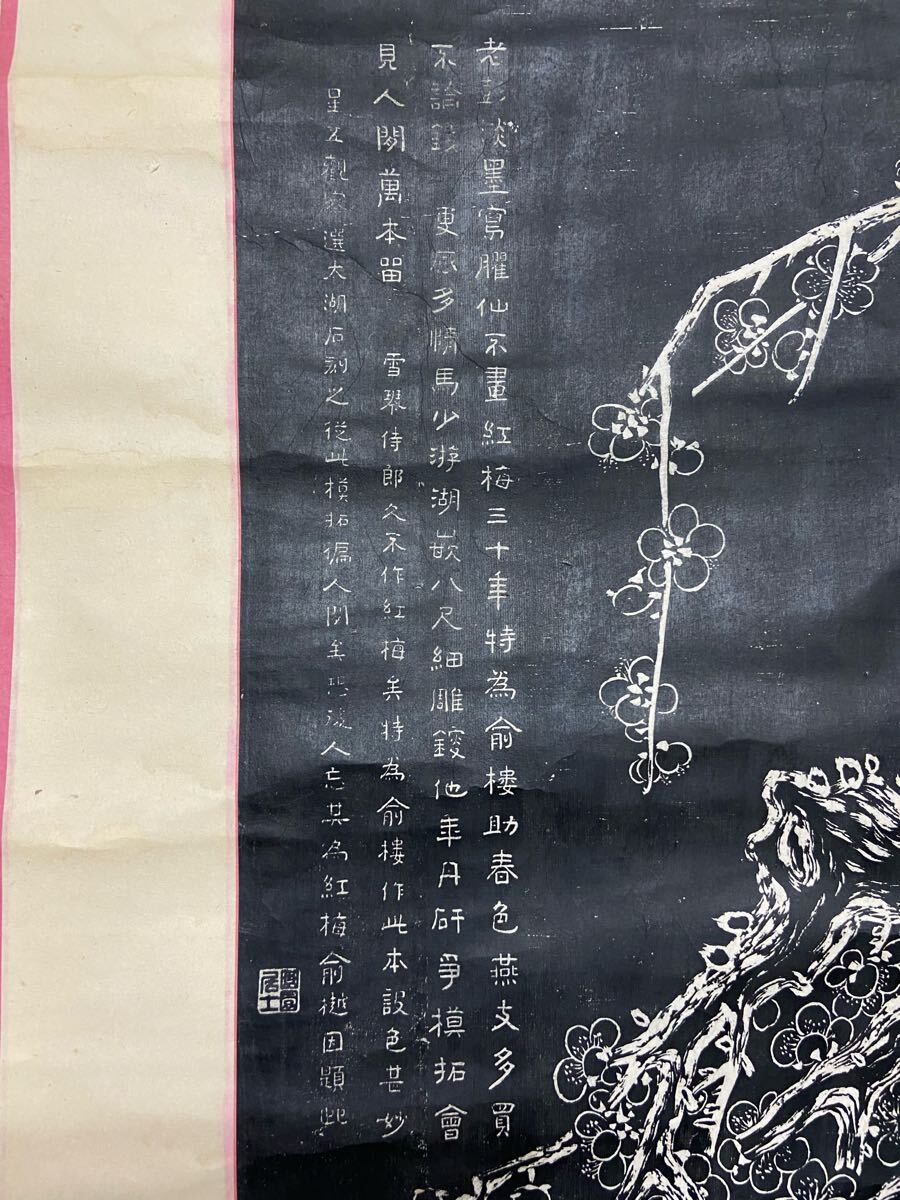 老彭淡墨寫臞仙不畫紅梅三十年特為俞樓助春色燕支多買
不論錢 更感多情馬少游湖嵌八尺細雕鎪他年丹研爭摸拓會
見人間萬本留 雪琴侍郎久不作紅梅矣特為俞樓作此本設色甚妙
星五觀察選太湖石刻之從此模拓徧人間矣恐後人忘其為紅梅俞樾因題此
曲園居士